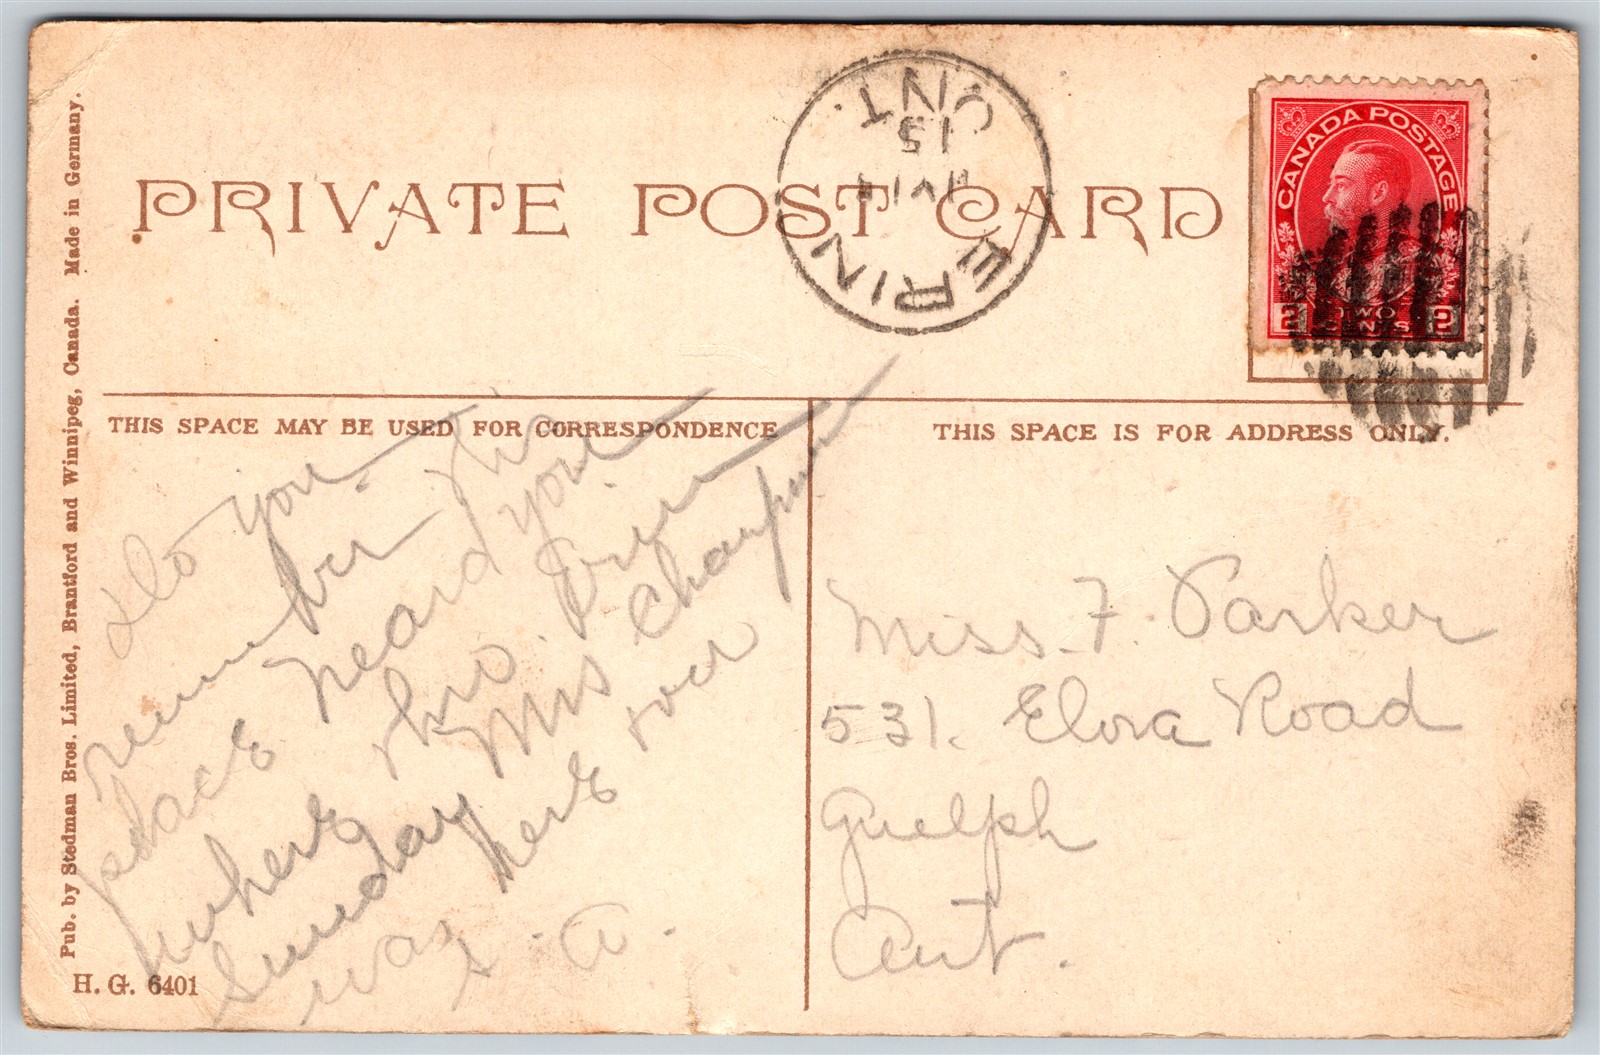 PRIVATE POST CARD
ERIN
VI 14
15
ONT.
CANADA POSTAGE
2 TWO CENTS 2
THIS SPACE MAY BE USED FOR CORRESPONDENCE
THIS SPACE IS FOR ADDRESS ONLY.
Do you
remember this
place heard you
where Mrs
Sunday Mrs
was here over
S. A.
Miss. F. Parker
531. Elora Road
Guelph
Ont.
Pub. by Stedman Bros. Limited, Brantford and Winnipeg, Canada. Made in Germany.
H. G. 6401